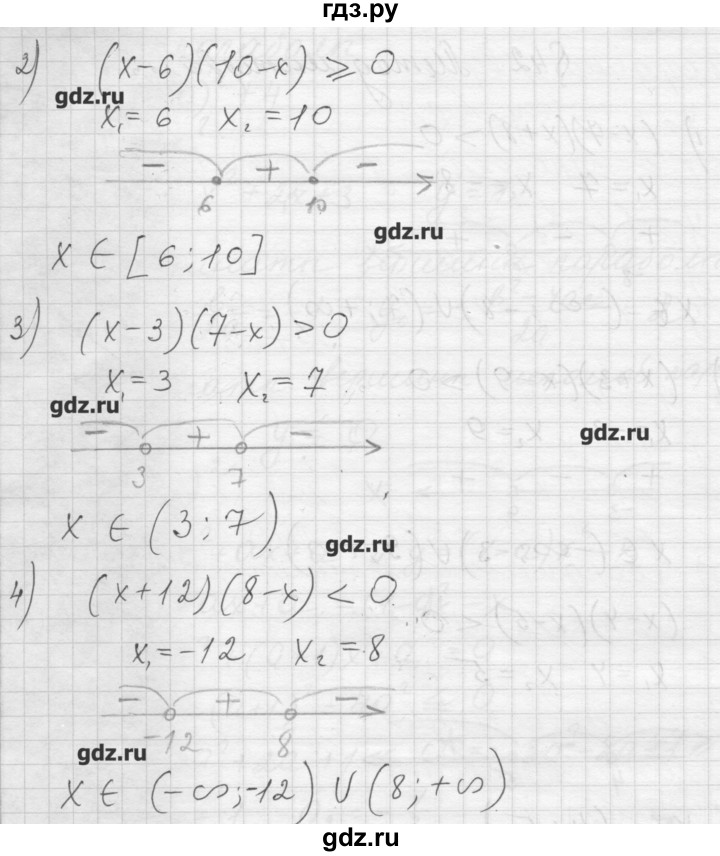 гдз.ру
2) (x-6)(10-x) ⩾ 0
gdz.ru
x₁=6 x₂=10
- + -
6 10
gdz.ru
x ∈ [6;10]
3) (x-3)(7-x)>0
x₁=3 x₂=7
gdz.ru
gdz.ru
- + -
3 7
x ∈ (3;7)
gdz.ru
4) (x+12)(8-x)<0
x₁=-12 x₂=8
- + -
-12 8
gdz.ru
x ∈ (-∞;-12) ∪ (8;+∞)
gdz.ru